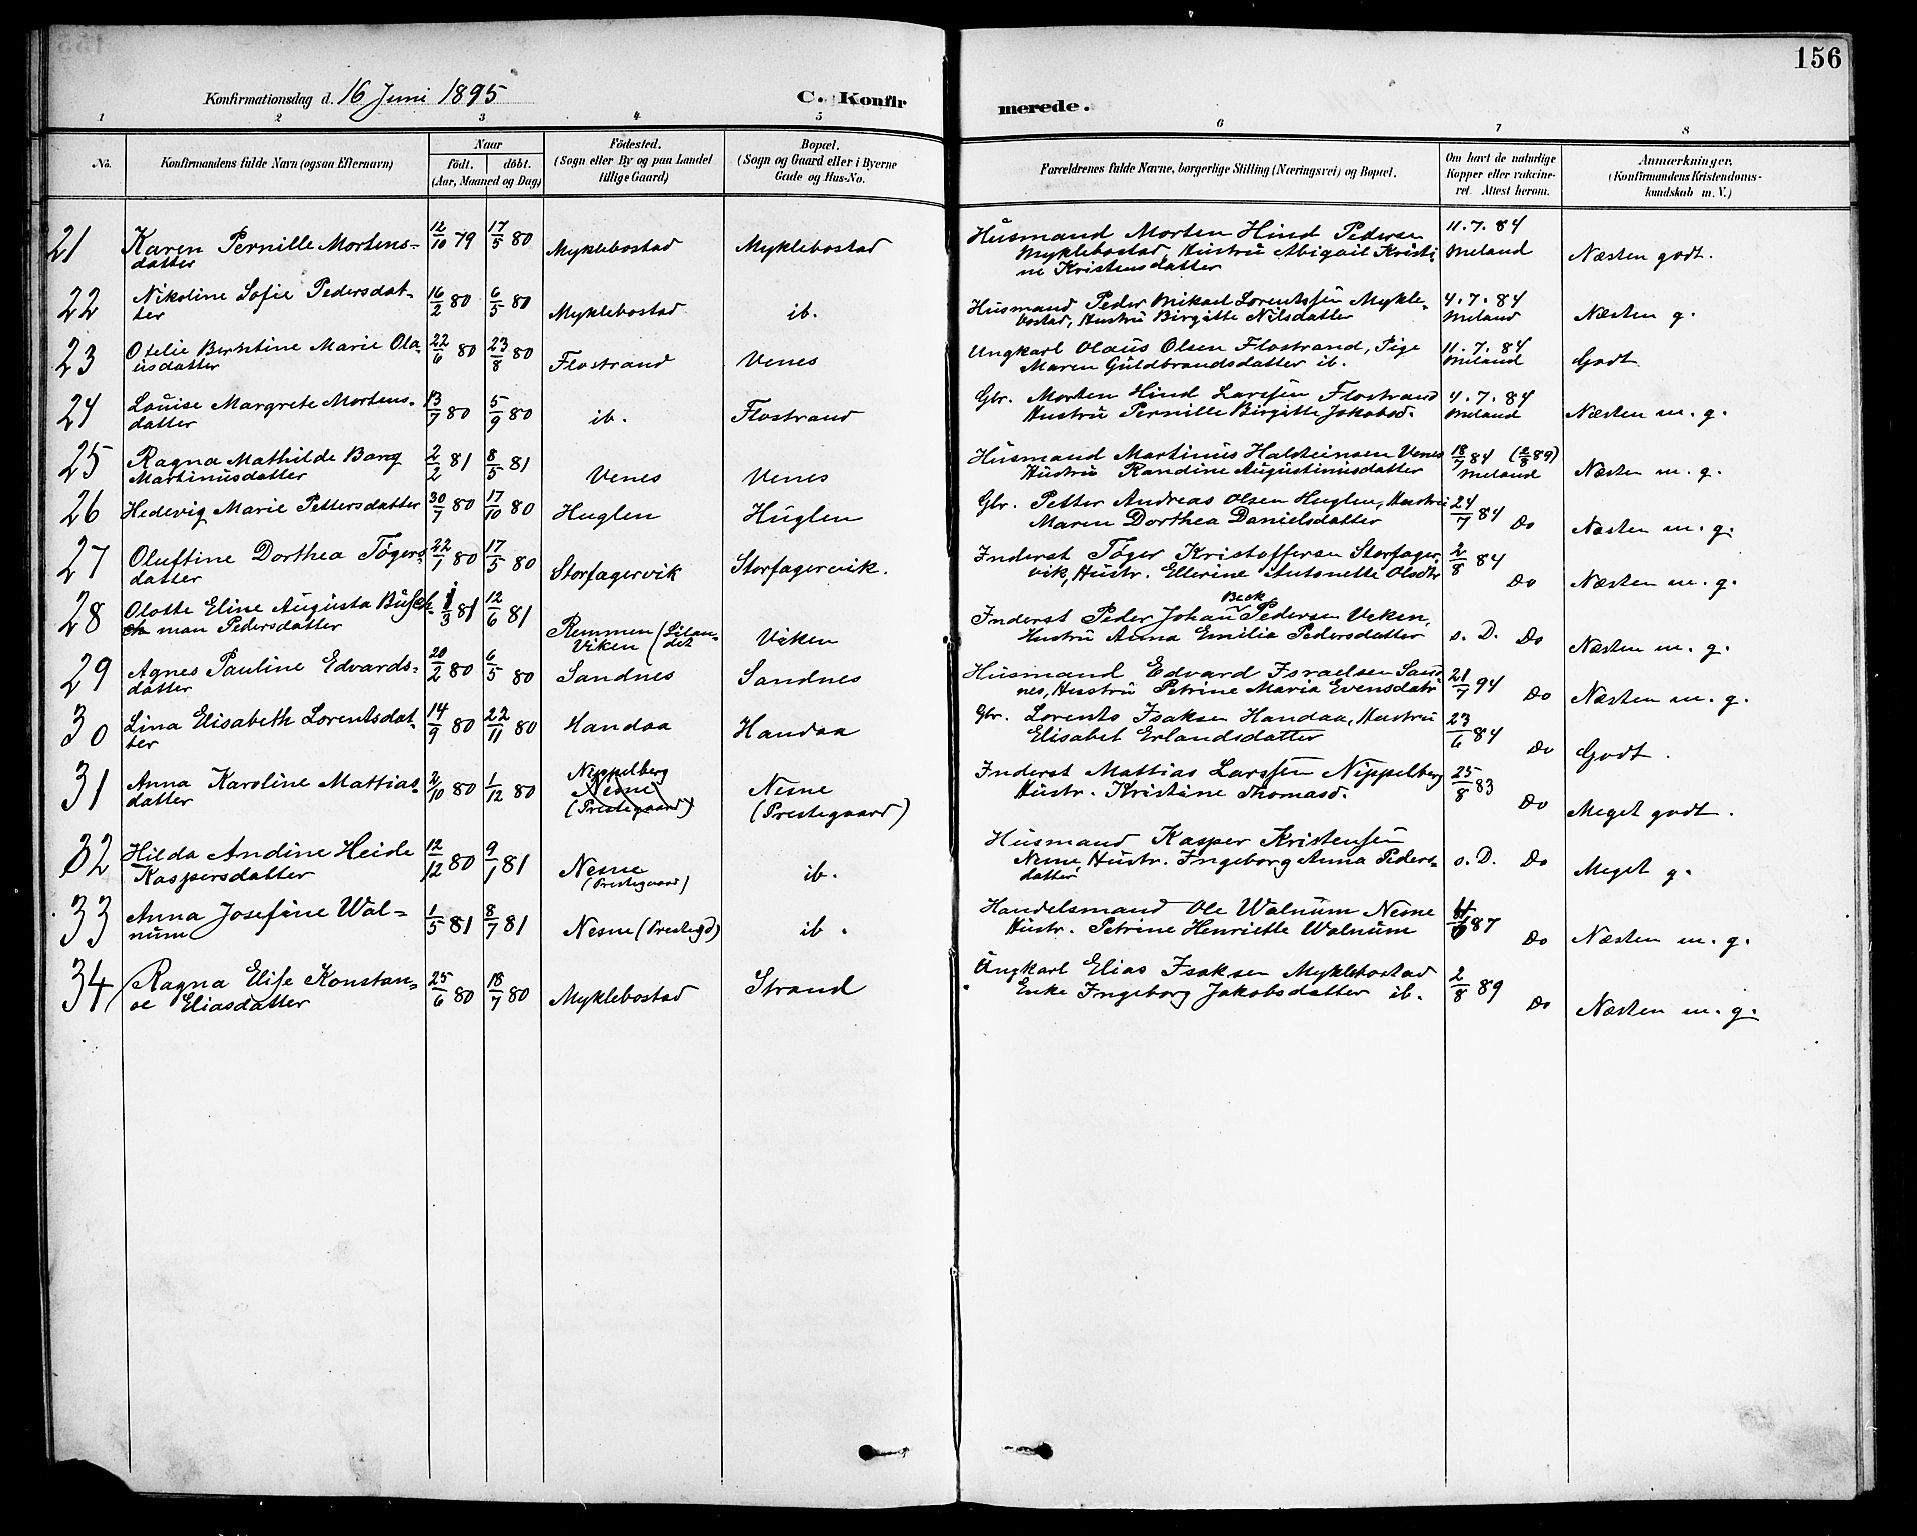 156
Konfirmationsdag d. 16 Juni 1895
C. Konfir
merede.
1 2 3 4 5 6 7 8
No.
Konfirmandens fulde Navn (ogsaa Efternavn)
Naar
født. døbt.
(Aar, Maaned og Dag)
Fødested.
(Sogn eller By og paa Landet
tillige Gaard)
Bopæl.
(Sogn og Gaard eller i Byerne
Gade og Hus-No.
Forældrenes fulde Navne, borgerlige Stilling (Næringsvei) og Bopæl.
Om havt de naturlige
Kopper eller vakcine-
ret. Attest herom.
Anmærkninger.
(Konfirmandens Kristendoms-
kundskab m. V.)
21 Karen Pernille Mortens- 12/10 79 17/5 80 Myklebostad Myklebostad Husmand Morten Hind Pedersen 11.7.84
datter Myklebostad, Hustru Abigail Kristi- Meland Næsten godt.
ne Kristensdatter
22 Nikoline Sofie Pedersdat- 16/2 80 6/5 80 Myklebostad ib. Husmand Peder Mikael Lorentssen Mykle- 4.7.84
ter bostad, Hustru Birgitte Nilsdatter Meland Næsten g.
23 Otelie Berntine Marie Ola- 22/6 80 23/8 80 Flostrand Venes Ungkarl Olaus Olsen Flostrand, Pige 11.7.84
usdatter Maren Guldbrandsdatter ib. Meland Godt
24 Louise Margrete Mortens- 13/7 80 5/9 80 ib. Flostrand Gbr. Morten Hind Larssen Flostrand 4.7.84
datter Hustru Pernille Birgitte Jakobsd. Meland Næsten m. g.
25 Ragna Mathilde Bang 2/2 81 8/5 81 Venes Venes Husmand Martinus Halsteinsen Venes 18/7 84 (2/8 89)
Martinusdatter Hustru Randine Augustinusdatter Meland Næsten m. g.
26 Hedevig Marie Pettersdatter 30/7 80 17/10 80 Huglen Huglen Gbr. Petter Andreas Olsen Huglen, Hustru 24/7 84 Do
Maren Dorthea Danielsdatter Næsten m. g.
27 Oluftine Dorthea Tøgers- 22/1 80 17/5 80 Storfagervik Storfagervik. Inderst Tøger Kristoffersen Storfager 2/8 84
datter vik, Hustr. Ellerine Antonette Olsdtr Do Næsten m. g.
28 Olotte Eline Augusta Busch 1/3 81 12/6 81 Remmen (Litlan- Viken Inderst Peder Johan Beck Pedersen Viken,
man Pedersdatter Viken det Hustru Anna Emilia Pedersdatter s. D. Do Næsten m. g.
29 Agnes Pauline Edvards- 20/2 80 6/5 80 Sandnes Sandnes Husmand Edvard Israelsen Sand 21/7 94 Do
datter nes, Hustru Petrine Maria Evensdatr Næsten m. g.
30 Lina Elisabeth Lorentsdat- 14/9 80 22/11 80 Handaa Handaa Gbr. Lorents Isaksen Handaa, Hustru 23/6 84
ter Elisabet Erlandsdatter Do Godt.
31 Anna Karoline Mattias- 2/10 80 1/12 80 Nippelberg Nesne Inderst Mattias Larssen Nippelberg 25/8 83
datter Nesne (Prestegaard) (Prestegaard) Hustr. Kristine Thomasd. Do Meget godt.
32 Hilda Andine Heide 12/12 80 9/1 81 Nesne ib. Husmand Kasper Kristensen
Kaspersdatter (Prestegaard) Nesne, Hustr. Ingeborg Anna Peders- s. D. Do Meget g.
datter
33 Anna Josefine Wal- 1/5 81 8/7 81 Nesne (Prestegd) ib. Handelsmand Ole Walnum Nesne 87
num Hustr. Petrine Henriette Walnum Do Næsten m. g.
34 Ragna Elise Konstan- 25/6 80 18/7 80 Myklebostad Strand Ungkarl Elias Isaksen Myklebostad 2/8 89
se Eliasdatter Enke Ingeborg Jakobsdatter ib. Do Næsten m. g.